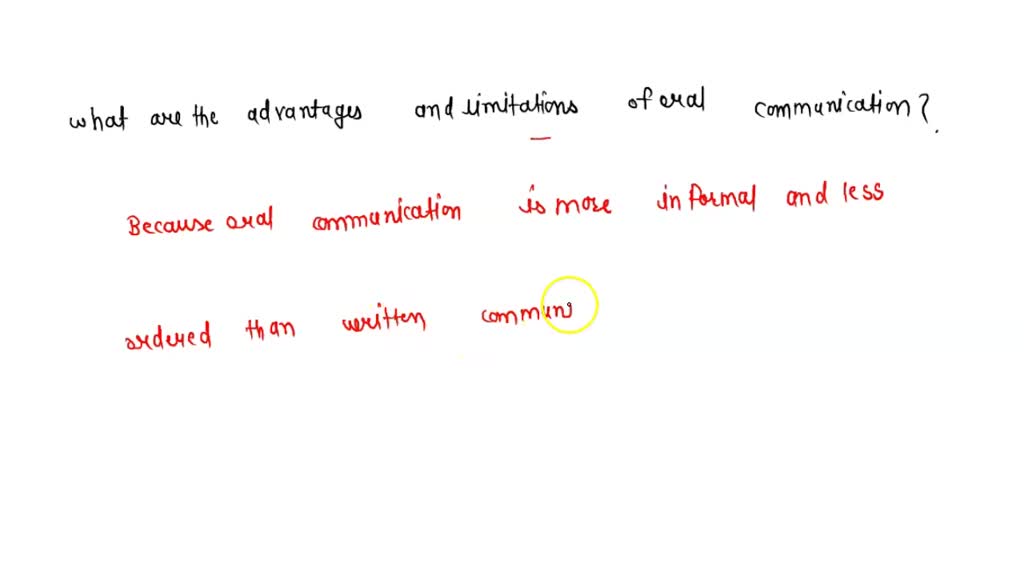 what are the advantages and limitations of oral communication?
Because oral communication is more informal and less
ordered than written commun